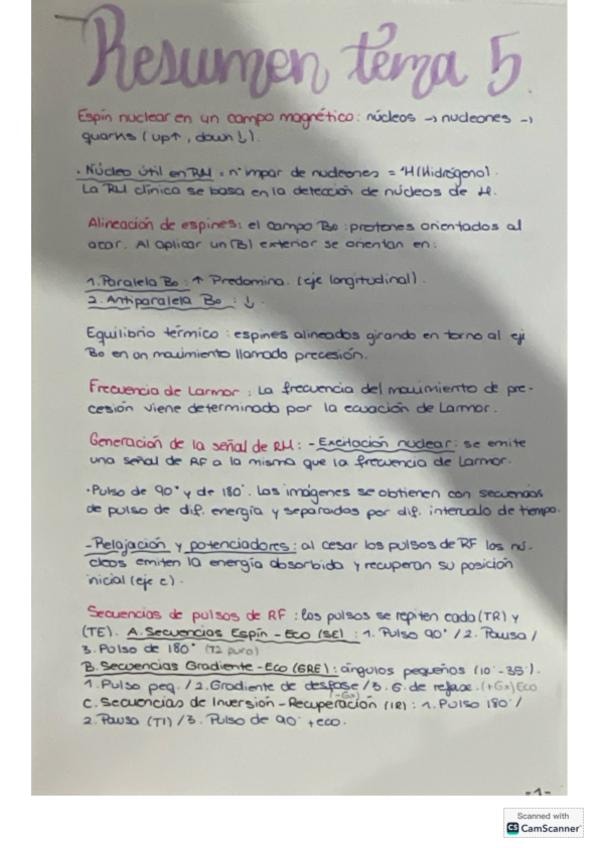 Resumen tema 5
Espín nuclear en un campo magnético: núcleos → nucleones →
quarks (up↑, down↓).
· Núcleo útil en RM = nº impar de nucleones = ¹H (Hidrógeno).
La RM clínica se basa en la detección de núcleos de H.
Alineación de espines: el campo Bo: protones orientados al
azar. Al aplicar un (B) exterior se orientan en:
1. Paralela Bo: ↑ Predomina. (eje longitudinal).
2. Antiparalela Bo: ↓.
Equilibrio térmico: espines alineados girando en torno al eje
Bo en un movimiento llamado precesión.
Frecuencia de Larmor: La frecuencia del movimiento de pre-
cesión viene determinado por la ecuación de Larmor.
Generación de la señal de RM: - Excitación nuclear: se emite
una señal de RF a la misma que la frecuencia de Larmor.
· Pulso de 90° y de 180°. Las imágenes se obtienen con secuencias
de pulso de dif. energía y separados por dif. intervalo de tiempo.
- Relajación y potenciadores: al cesar los pulsos de RF los nú-
cleos emiten la energía absorbida y recuperan su posición
inicial (eje z).
Secuencias de pulsos de RF: los pulsos se repiten cada (TR) y
(TE). A. Secuencias Espín - Eco (SE): 1. Pulso 90° / 2. Pausa /
3. Pulso de 180° (T2 puro)
B. Secuencias Gradiente - Eco (GRE): ángulos pequeños (10°-35°).
1. Pulso peq. / 2. Gradiente de desfase / 3. G. de refase. (+Gx) Eco
(-Gx)
C. Secuencias de Inversión - Recuperación (IR): 1. Pulso 180° /
2. Pausa (TI) / 3. Pulso de 90° + eco.
-1-
Scanned with
CS CamScanner